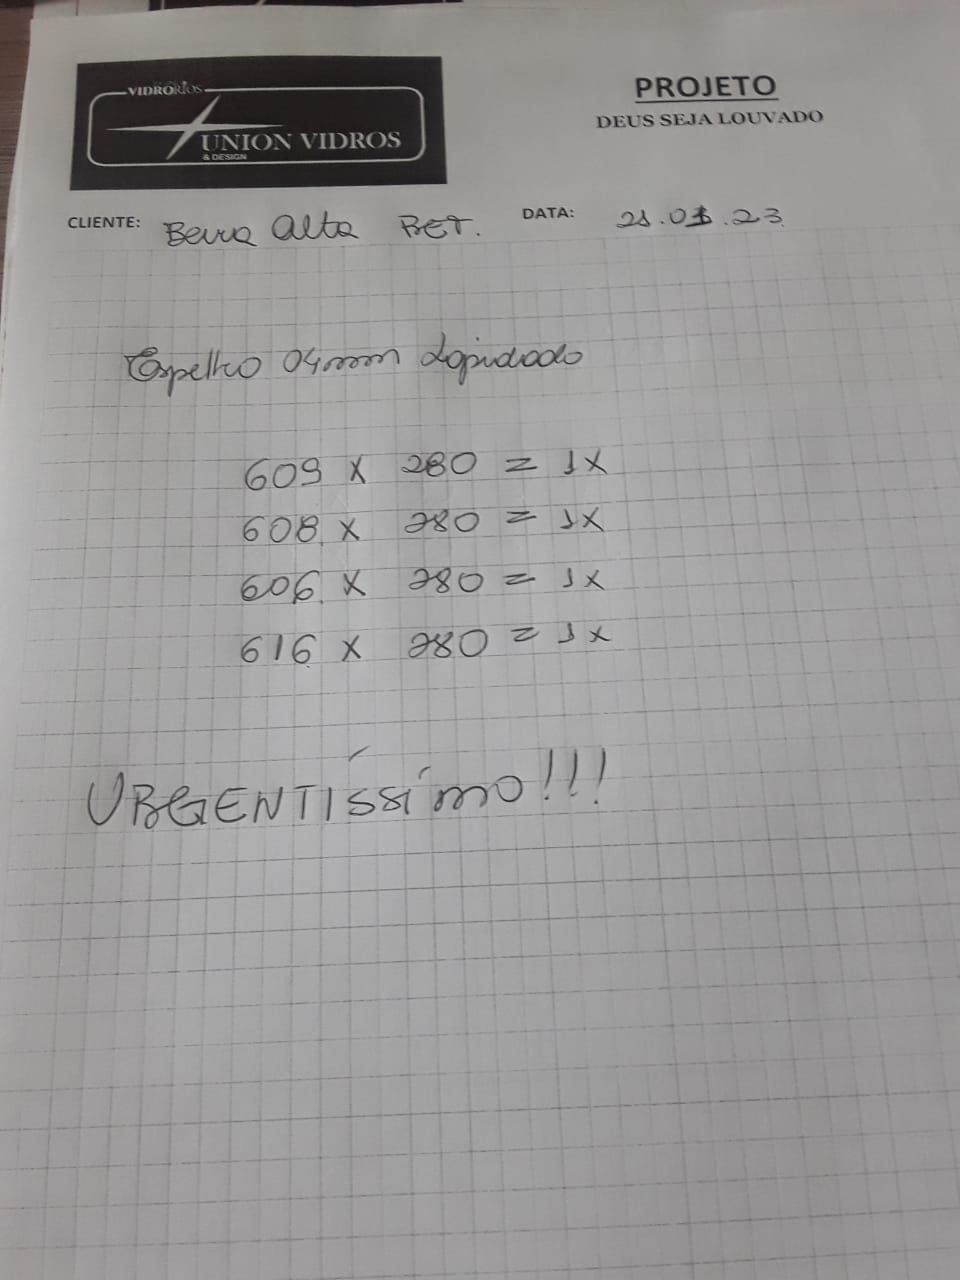 VIDRORIOS
UNION VIDROS
& DESIGN
PROJETO
DEUS SEJA LOUVADO
CLIENTE: Alta BET. DATA: 21.01.23
Espelho 04mm Lapidado
609 X 280 = 1X
608 X 280 = 1X
606 X 280 = 1X
616 X 280 = 1X
URGENTÍSSímo!!!